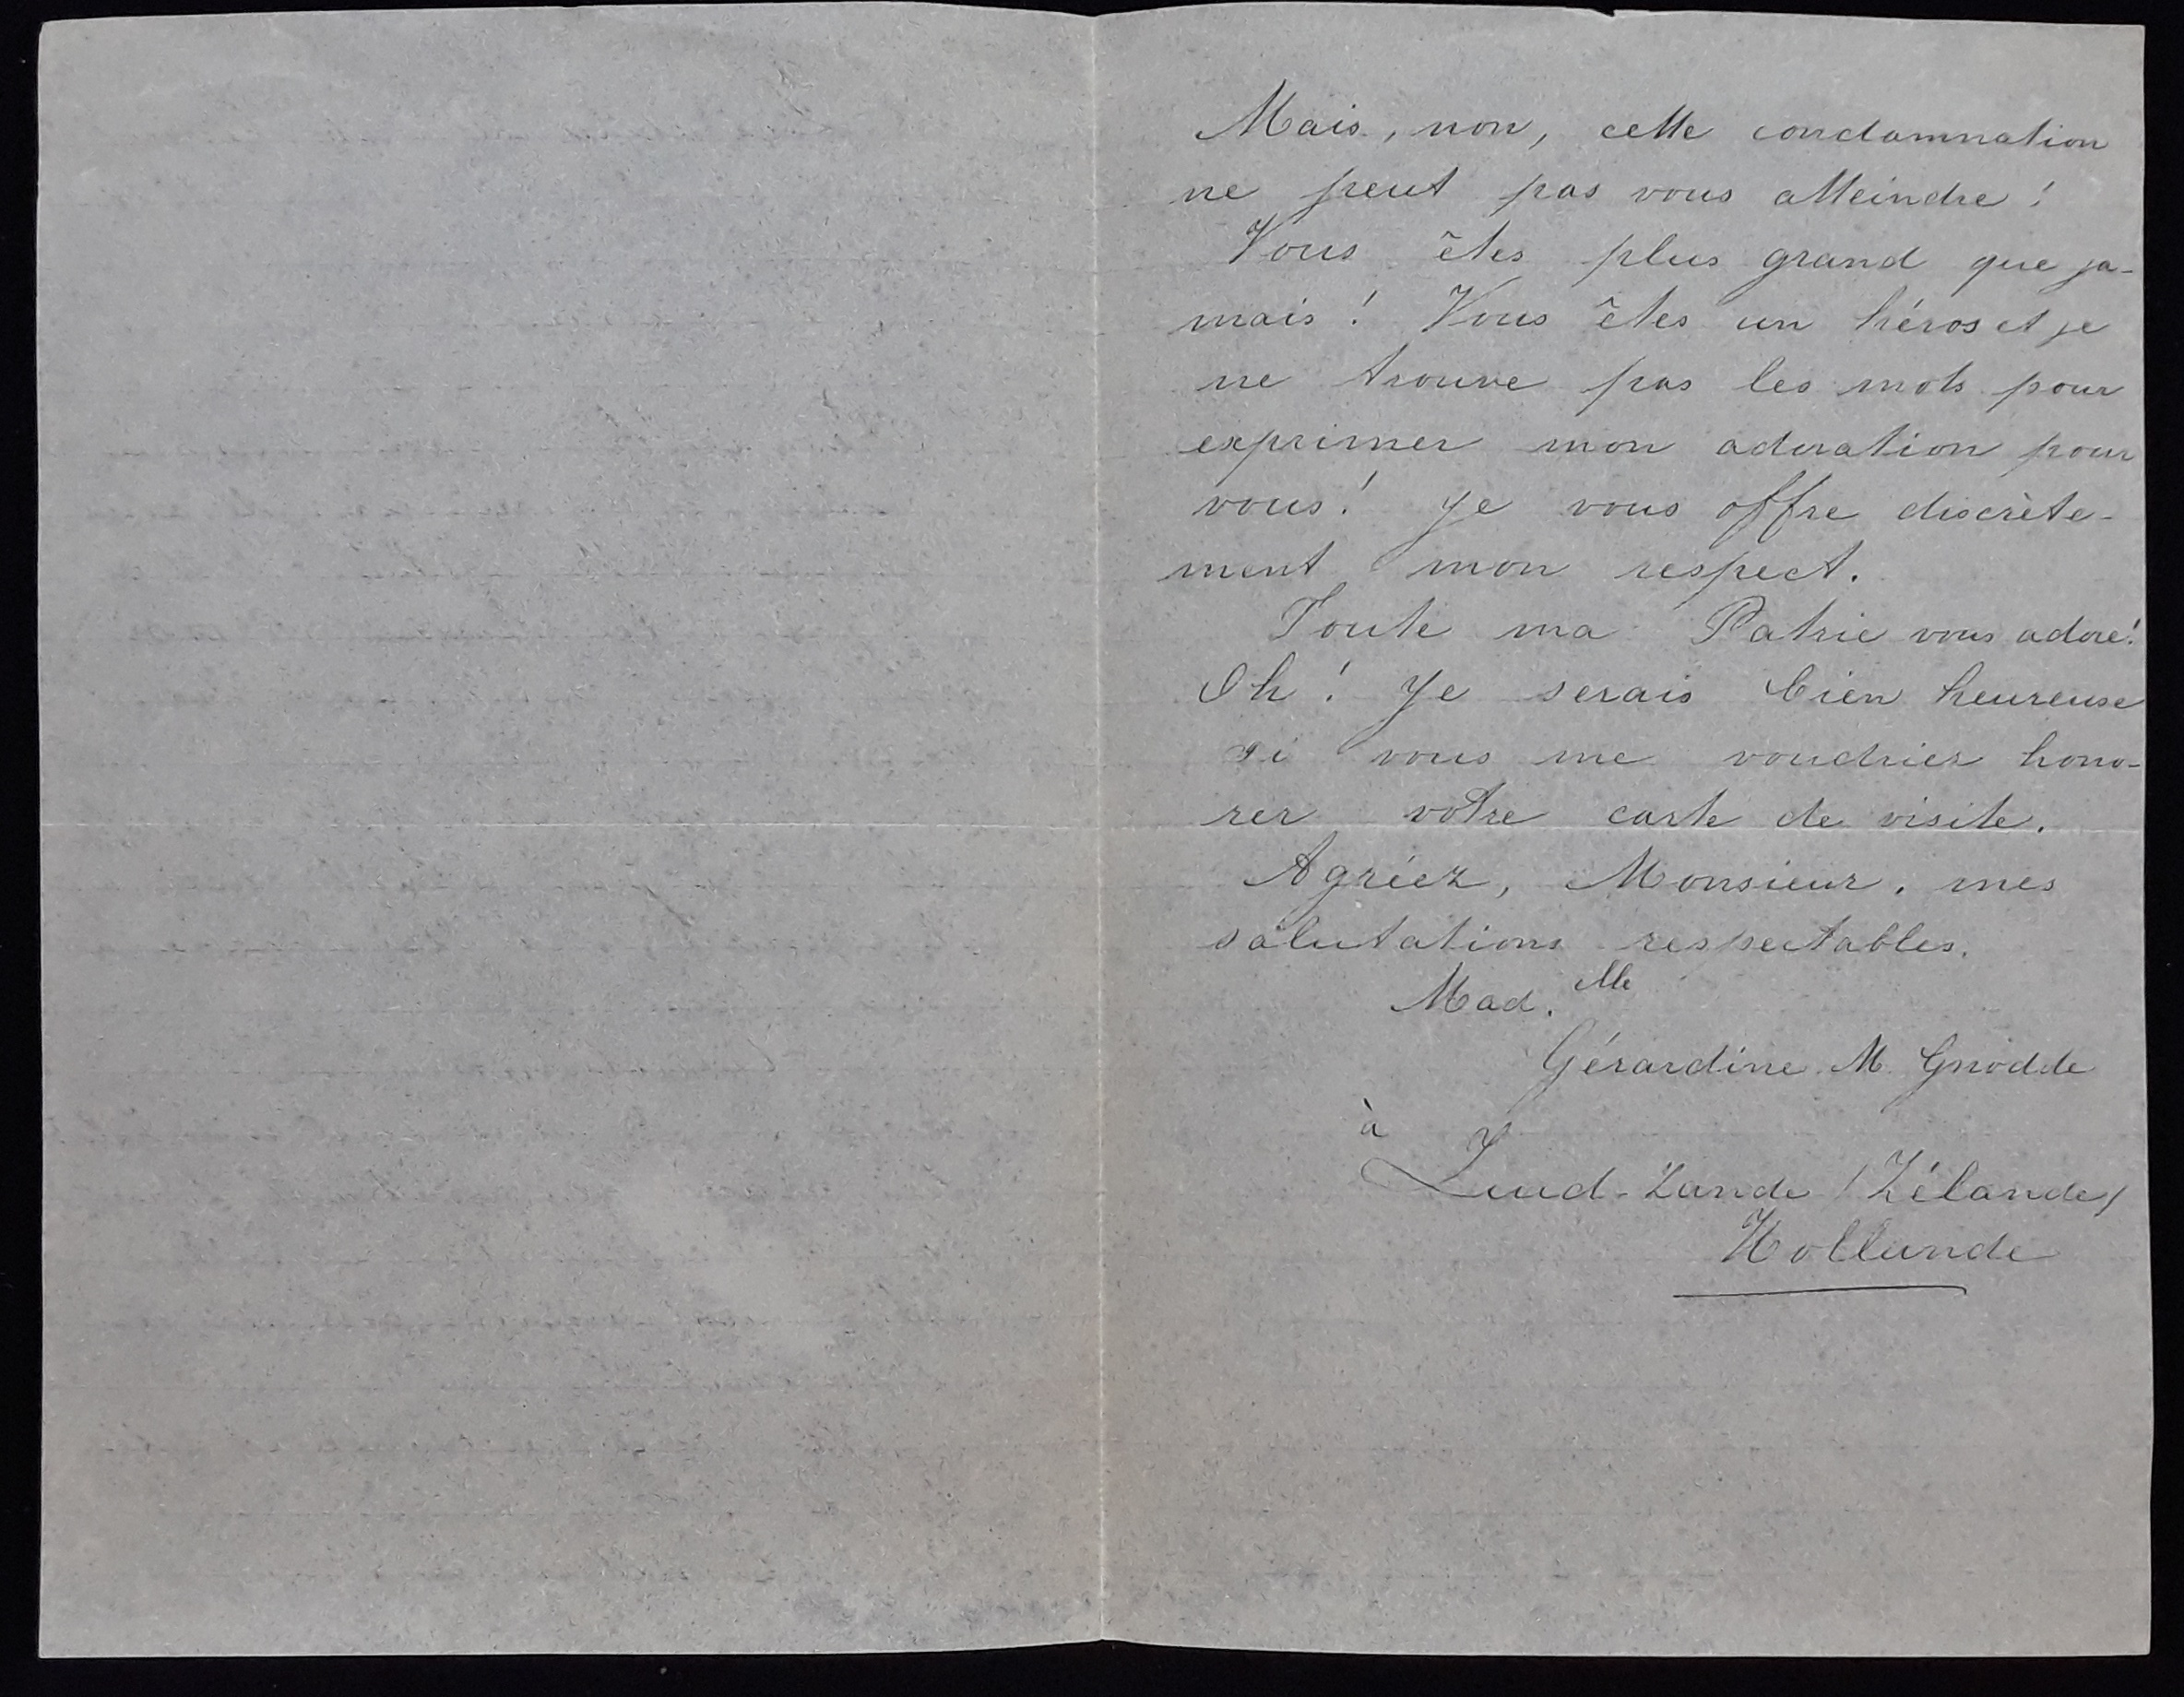 Mais, non, cette condamnation
ne peut pas vous atteindre!
Vous êtes plus grand que ja-
mais! Vous êtes un héros et je
ne trouve pas les mots pour
exprimer mon adoration pour
vous! Je vous offre discrète-
ment mon respect.
Toute ma Patrie vous adore!
Oh! Je serais bien heureuse
si vous me voudriez hono-
rer votre carte de visite.
Agréez, Monsieur, mes
salutations respectables.
Mad. elle
Gérardine M. Gnodde
à
Zuid-Zande (Zélande)
Hollande